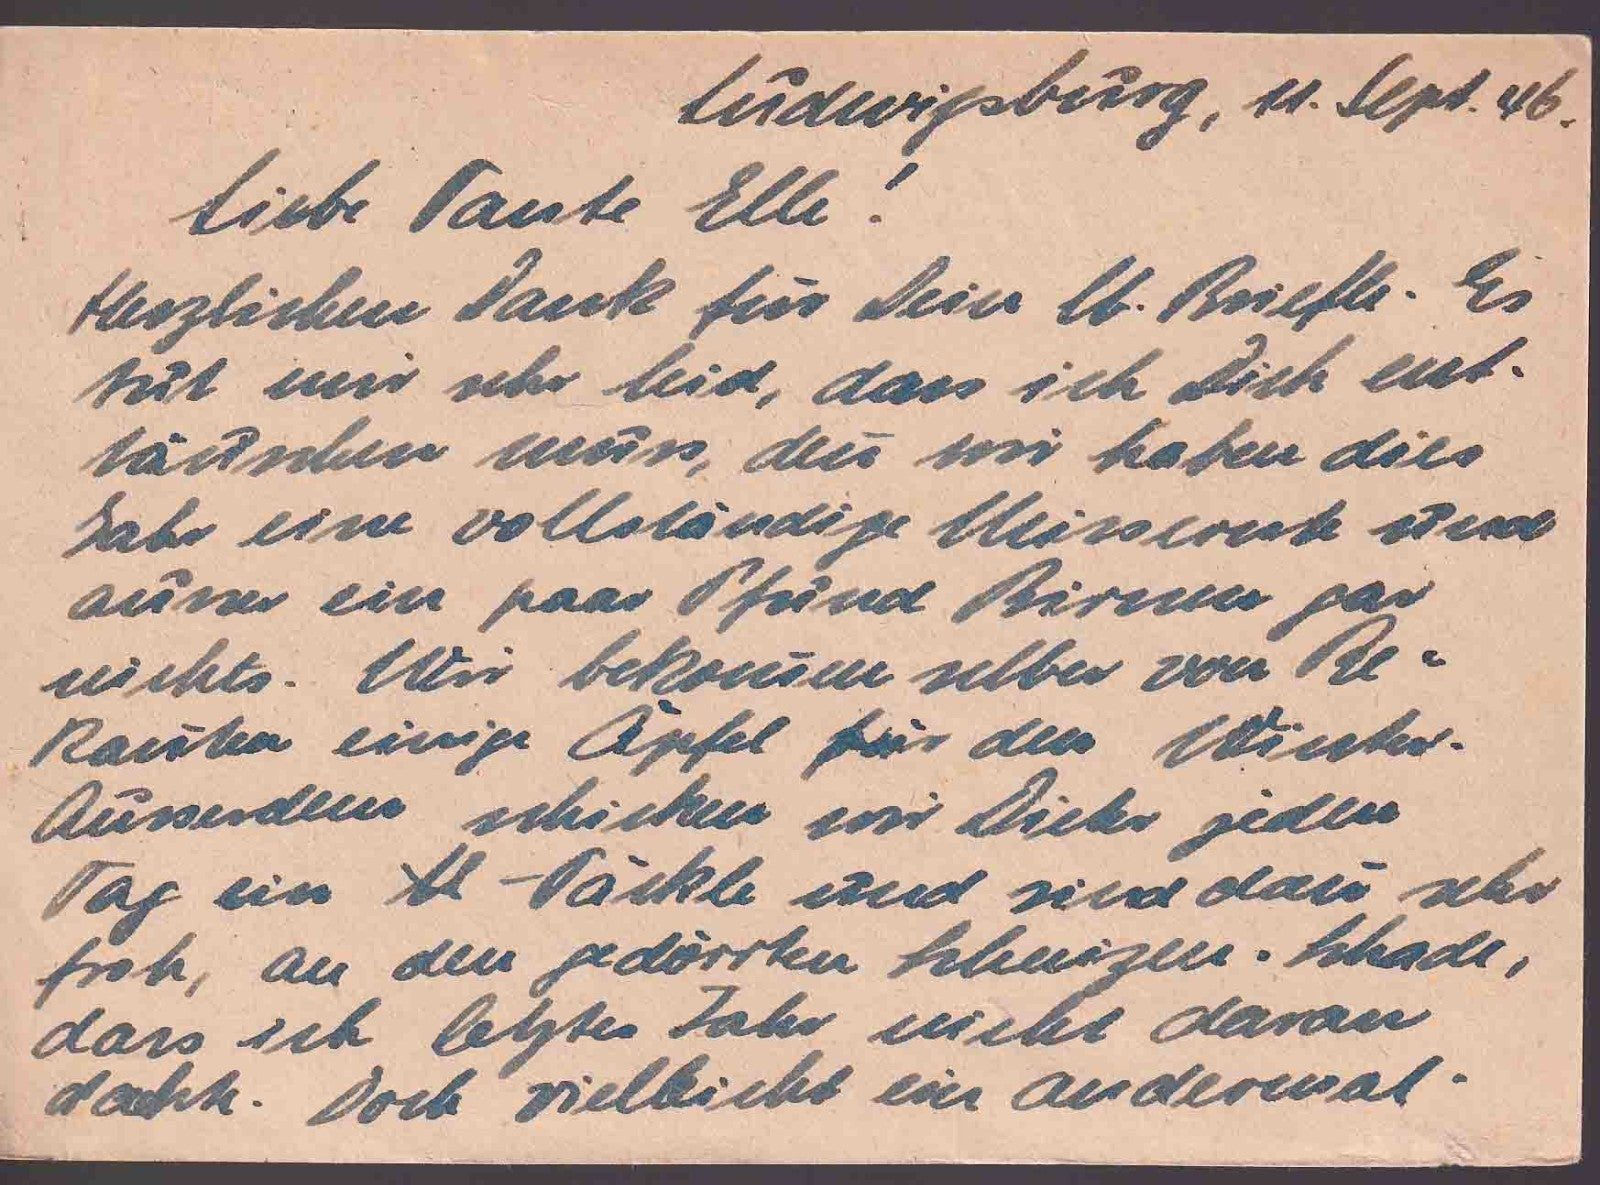 Ludwigsburg, 11. Sept. 46.
Liebe Tante Elle!
Herzlichen Dank für Dein lb. Briefle. Es
tut mir sehr leid, dass ich Dich ent-
täuschen muss, den̄ wir haben dies
Jahr eine vollständige Missernte und
ausser ein paar Pfund Birnen gar
nichts. Wir bekom̄en selber von Be-
kannten einige Äpfel für den Winter.
Ausserdem schicken wir Dieter jeden
Tag ein Päckle und sind dan̄ sehr
froh, an den gedörrten Schnizen. Schade,
dass ich letztes Jahr nicht daran
dachte. Doch vielleicht ein andermal.